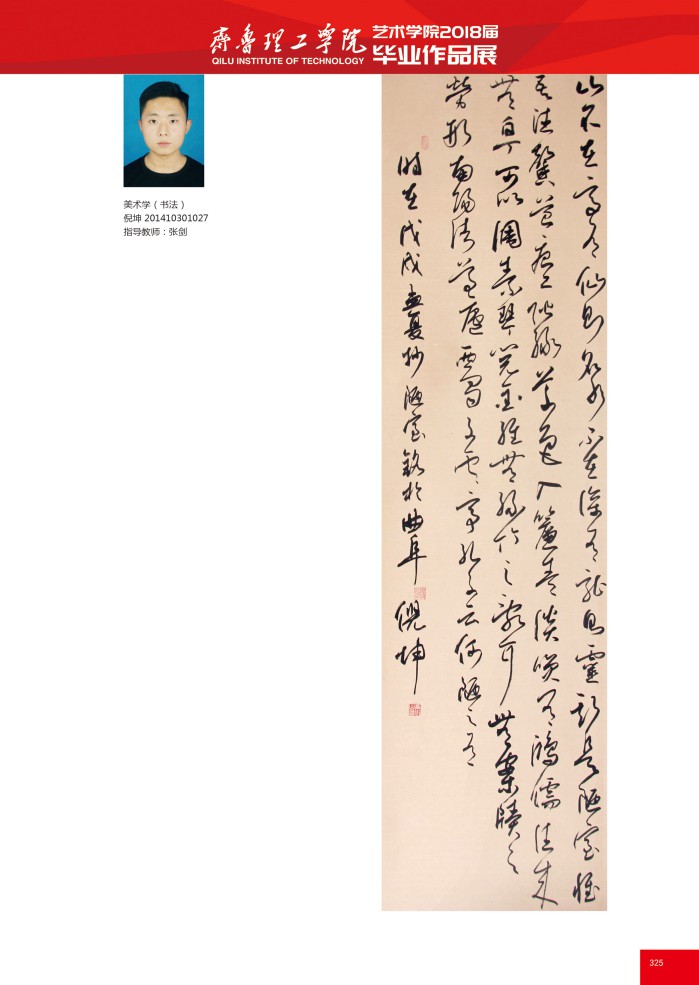 齊魯理工學院
QILU INSTITUTE OF TECHNOLOGY
艺术学院2018届
毕业作品展
美术学（书法）
倪坤 201410301027
指导教师：张剑
山不在高有仙則名水不在深有龍則靈斯是陋室惟
吾德馨苔痕上階緑草色入簾青談笑有鴻儒往來
無白丁可以調素琴閲金經無絲竹之亂耳無案牘之
勞形南陽諸葛廬西蜀子雲亭孔子云何陋之有
時在戊戌孟夏抄陋室銘於曲阜 倪坤
325